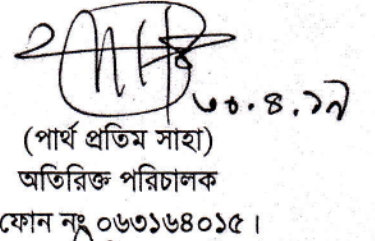 ৩০.৪.১৭
(পার্থ প্রতিম সাহা)
অতিরিক্ত পরিচালক
ফোন নং ০৬৩১৬৪০১৫।